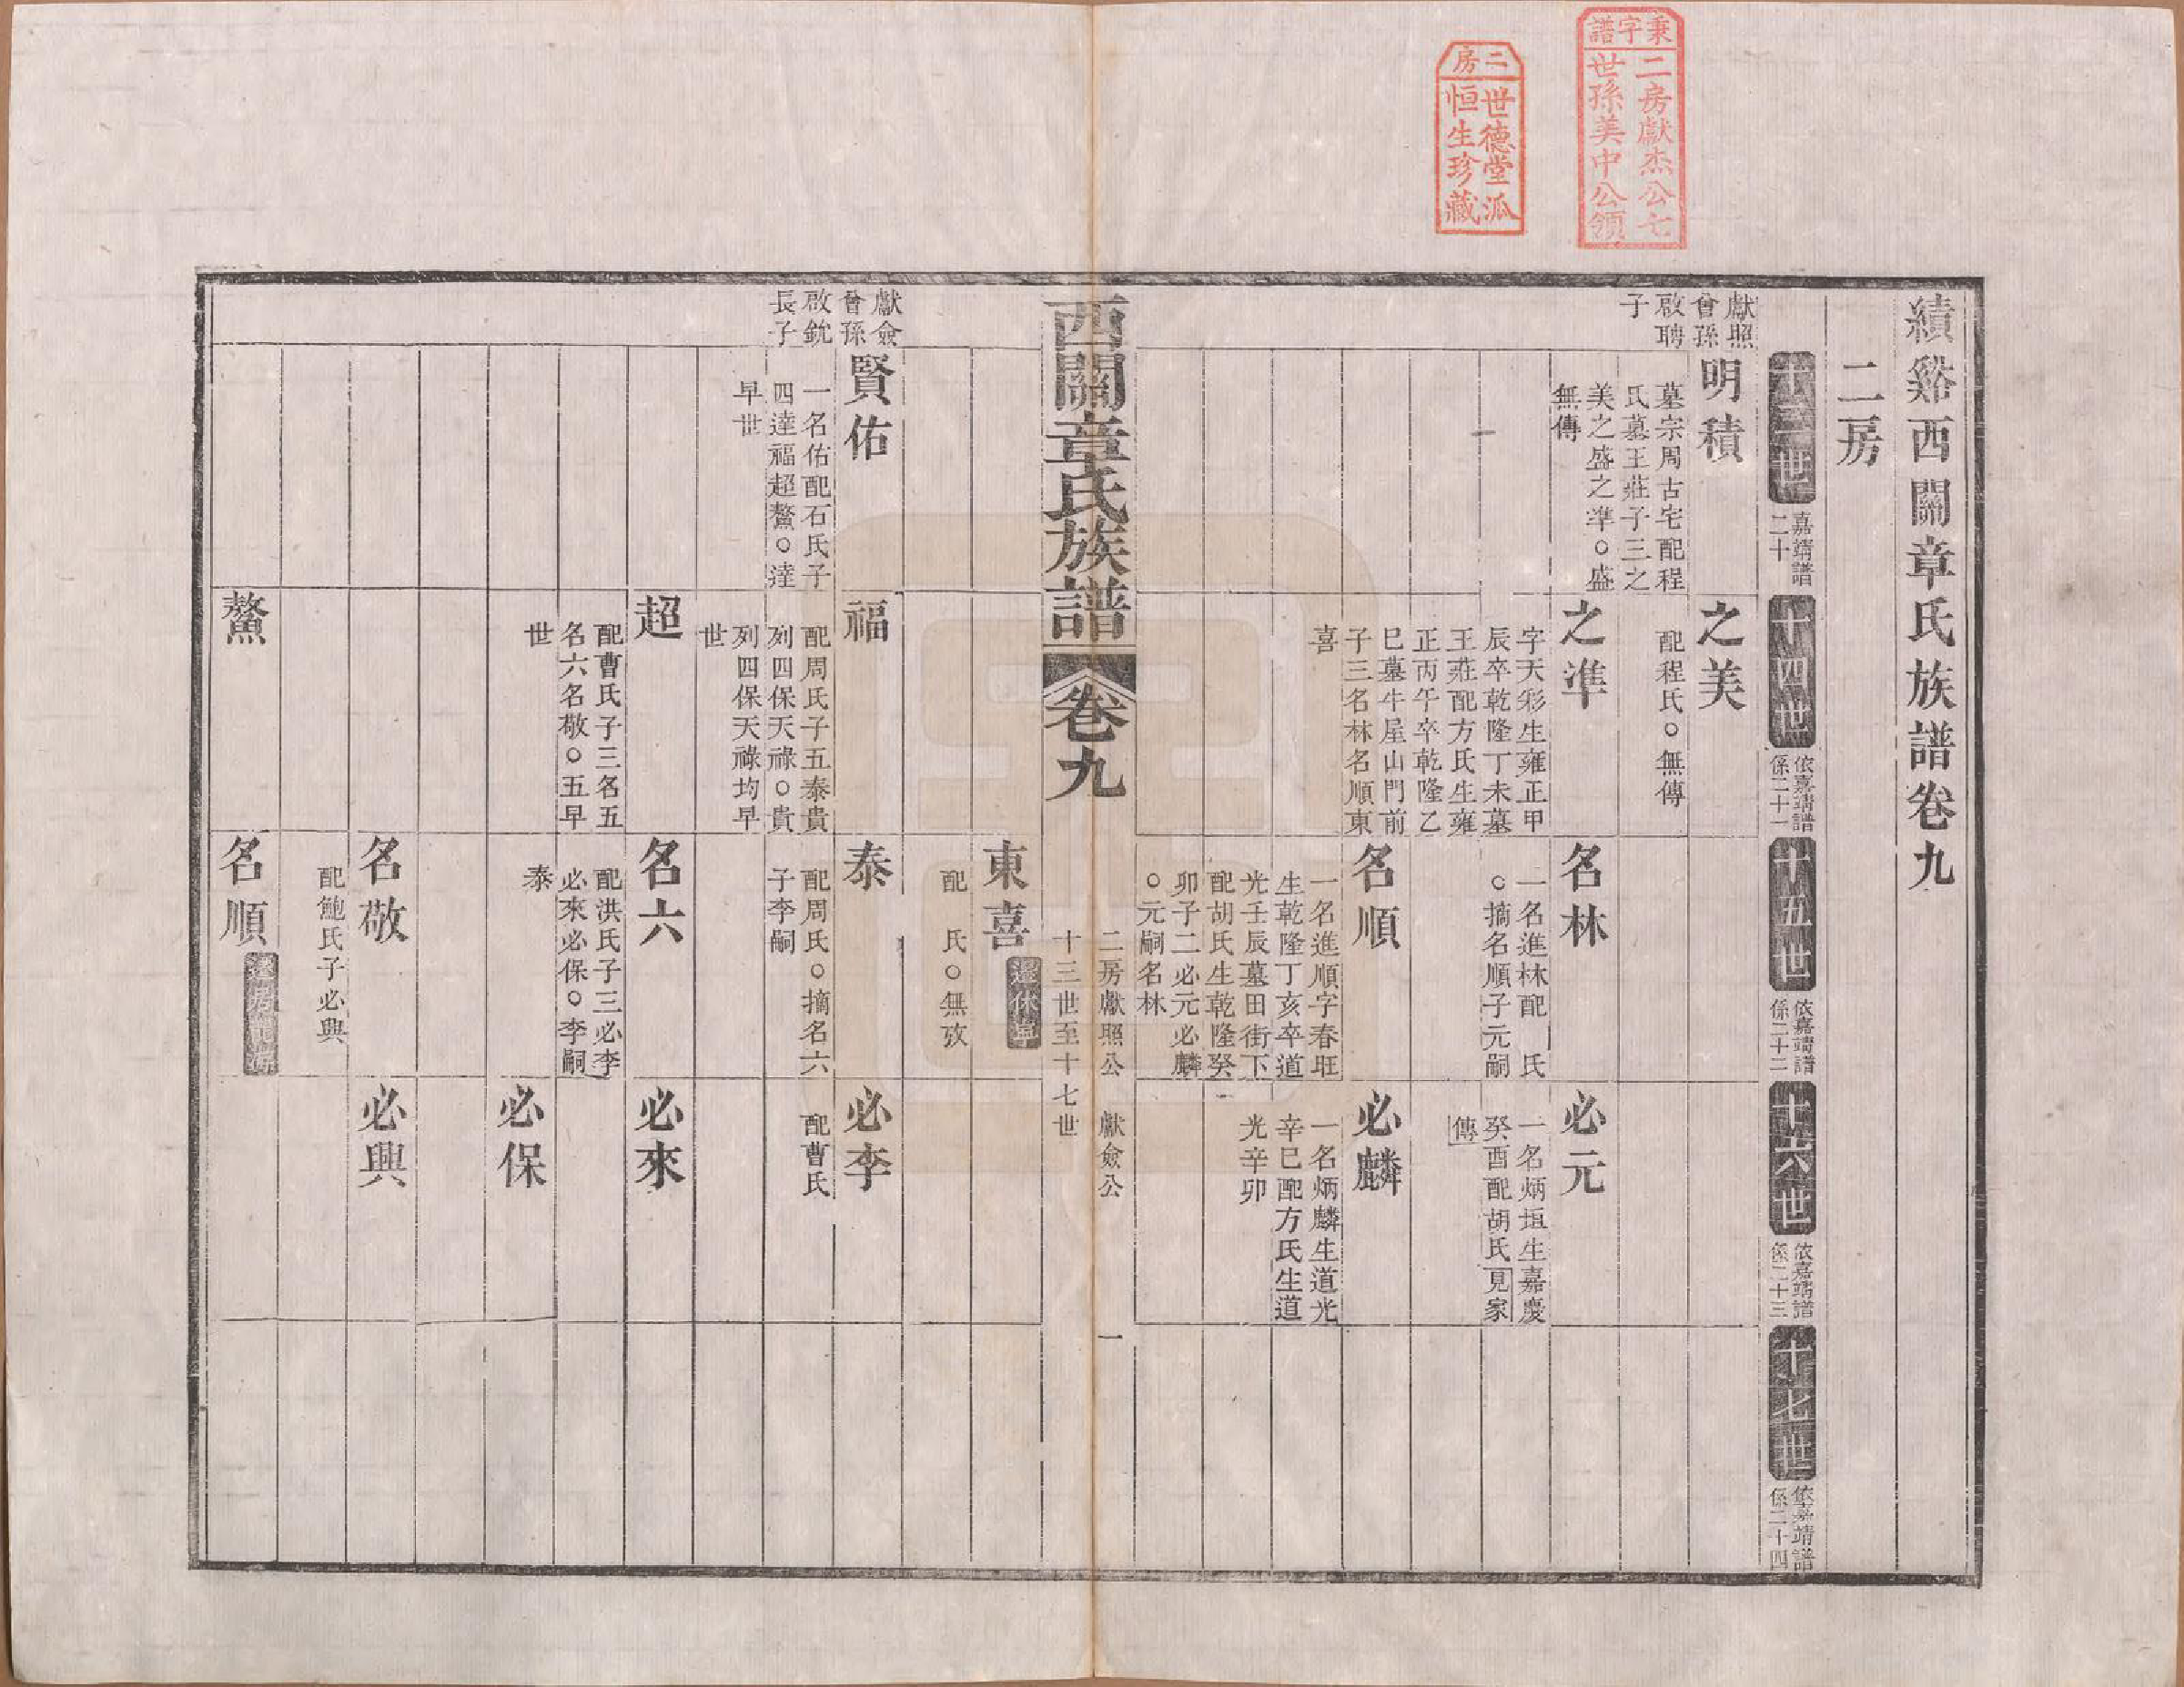 秉字譜
二房獻杰公七
世孫美中公領
二房
世德堂派
恒生珍藏
績谿西關章氏族譜卷九
二房
十三世
嘉靖譜
二十
十四世
依嘉靖譜
係二十一
十五世
依嘉靖譜
係二十二
十六世
依嘉靖譜
係二十三
十七世
依嘉靖譜
係二十四
獻照
曾孫
啟聘
子
明積
墓宗周古宅配程
氏墓王莊子三之
美之盛之準○盛
無傳
之美
配程氏○無傳
之準
字天彩生雍正甲
辰卒乾隆丁未墓
王莊配方氏生雍
正丙午卒乾隆乙
巳墓牛屋山門前
子三名林名順東
喜
名林
一名進林配 氏
○摘名順子元嗣
必元
一名炳垣生嘉慶
癸酉配胡氏見家
傳
名順
一名進順字春旺
生乾隆丁亥卒道
光壬辰墓田街下
配胡氏生乾隆癸
卯子二必元必麟
○元嗣名林
必麟
一名炳麟生道光
辛巳配方氏生道
光辛卯
西關章氏族譜
卷九
二房獻照公 獻僉公
十三世至十七世
一
東喜
遷休甯
配 氏○無攷
獻僉
曾孫
啟銳
長子
賢佑
一名佑配石氏子
四達福超鰲○達
早世
福
配周氏子五泰貴
列四保天祿○貴
列四保天祿均早
世
泰
配周氏○摘名六
子李嗣
必李
配曹氏
超
配曹氏子三名五
名六名敬○五早
世
名六
配洪氏子三必李
必來必保○李嗣
泰
必來
必保
名敬
配鮑氏子必興
必興
鰲
名順